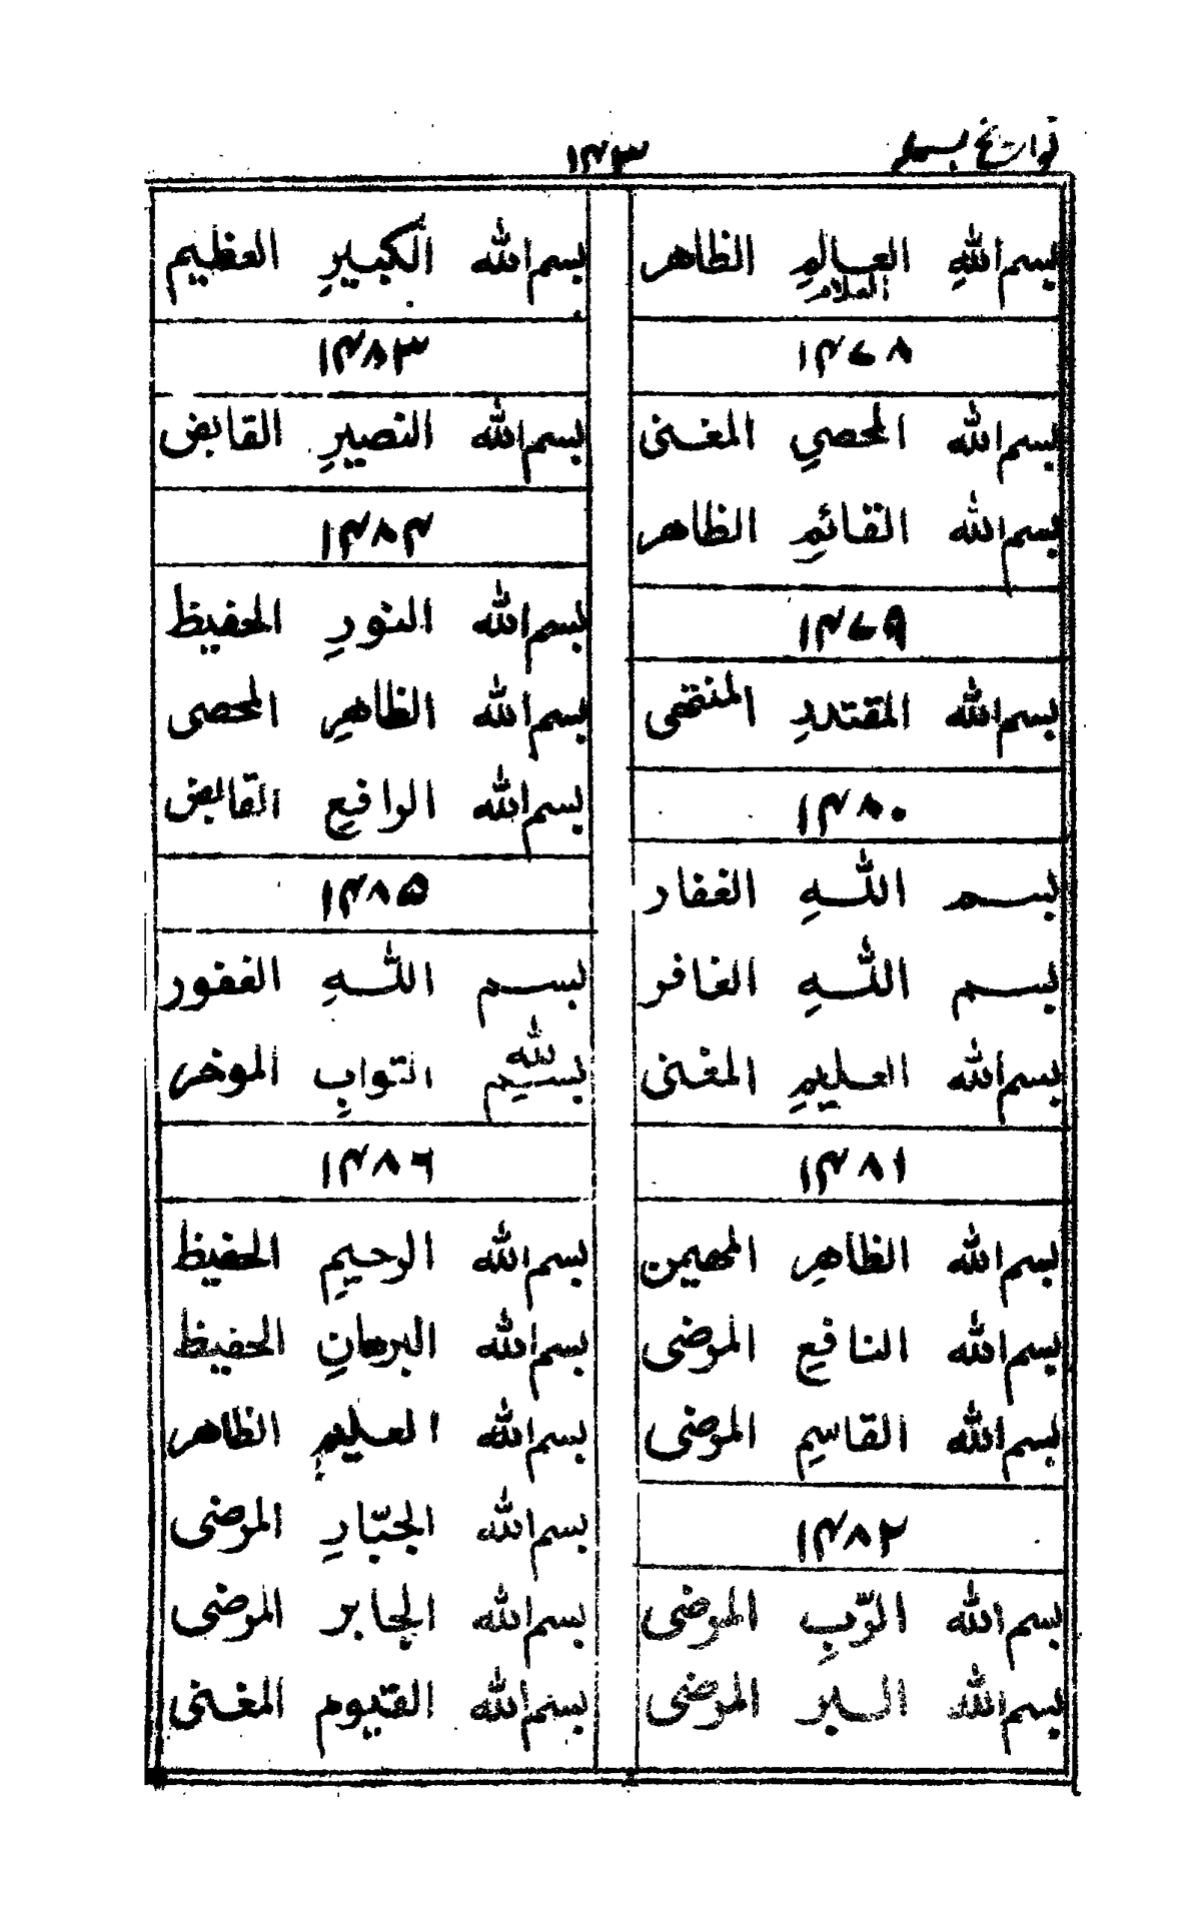 تواریخ بسملہ
۱۴۳
بسم اللهِ العالمِ الظاهر
العلام
۱۴۷۸
بسم الله المحصیِ المغنی
بسم الله القائمِ الظاهر
۱۴۷۹
بسم الله المقتدرِ المنتقی
۱۴۸۰
بسم اللهِ الغفار
بسم اللهِ الغافر
بسم الله العلیمِ المغنی
۱۴۸۱
بسم الله الظاهرِ المهیمن
بسم الله النافعِ المرضی
بسم الله القاسمِ المرضی
۱۴۸۲
بسم الله الرّبِ المرضی
بسم الله البر المرضی
بسم الله الکبیرِ العظیم
۱۴۸۳
بسم الله النصیرِ القابض
۱۴۸۴
بسم الله النورِ الحفیظ
بسم الله الظاهرِ المحصی
بسم الله الرافعِ القابض
۱۴۸۵
بسم اللهِ الغفور
بسم الله التوابِ الموخر
۱۴۸۶
بسم الله الرحیمِ الحفیظ
بسم الله البرهانِ الحفیظ
بسم الله العلیمِ الظاهر
بسم الله الجبّارِ المرضی
بسم الله الجابر المرضی
بسم الله القیوم المغنی